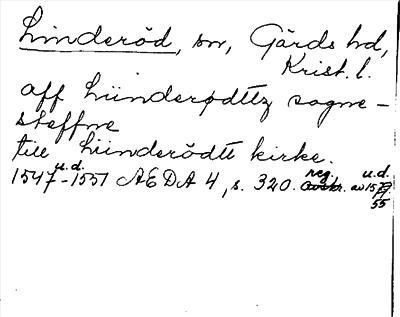 Linderöd, sn, Gärds hd,
Krist. l.
aff Liinderødttz sogne-
steffne
till Liinderödtt kirke.
1547 u.d. - 1551 AEDA 4, s. 320. reg. u.d.
55